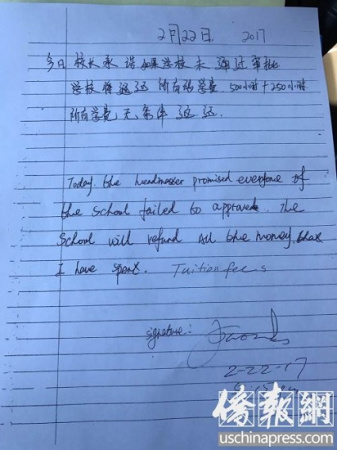 2月22日, 2017
今日 校长承诺如果学校未通过审批
学校将退还所有的学费 500小时+250小时
所有学费无条件返还.
Today. the headmaster promised everyone of
the school failed to approved. The
School will refund All the money that
I have spent. Tuition fees
signature:
2-22-17
僑報網
uschinapress.com